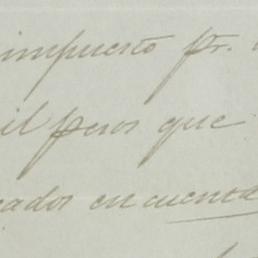 impuesto pr.
il pesos que
cados en cuenta